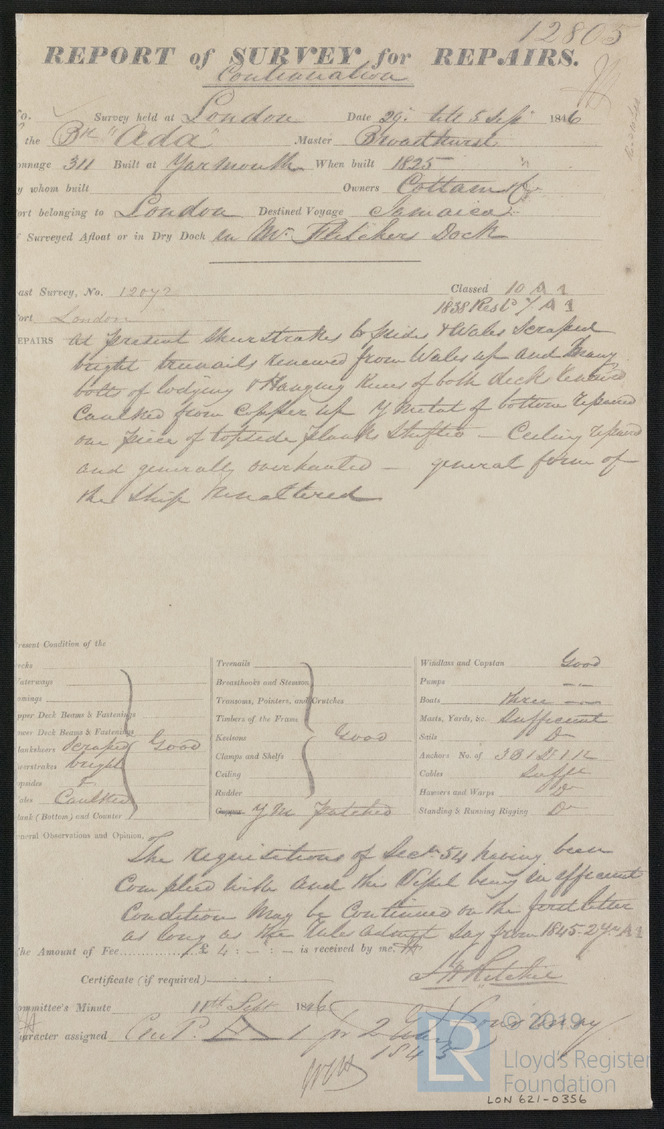 12805
REPORT of SURVEY for REPAIRS.
Continuation
No. Survey held at London Date 29 till 5 Sepr 1846
the Bk "Ada" Master Broadhurst
onnage 311 Built at Yarmouth When built 1825
y whom built Owners Cottam & Co
ort belonging to London Destined Voyage Jamaica
f Surveyed Afloat or in Dry Dock in Mr. Fletchers Dock
ast Survey, No. 12072 Classed 10 A 1
ort London 1838 Restd 7 A 1
EPAIRS At present Sheerstrakes topsides & Wales scraped
bright treenails renewed from Wales up and many
bolts of lodging & Hanging knees of both decks renewed
Caulked from Copper up Y Metal of bottom repaired
one piece of topside plank shifted — Ceiling repaired
and generally overhauled — general form of
the Ship unaltered
resent Condition of the
ecks
Waterways
omings
pper Deck Beams & Fastenings
ower Deck Beams & Fastenings
lanksheers Scraped Good
eerstrakes bright
opsides &
ales Caulked
lank (Bottom) and Counter
Treenails
Breasthooks and Stemson
Transoms, Pointers, and Crutches
Timbers of the Frame
Keelsons Good
Clamps and Shelfs
Ceiling
Rudder
Copper Y M patched
Windlass and Capstan Good
Pumps
Boats three
Masts, Yards, &c. Sufficient
Sails Do
Anchors No. of 3 B 1 S 1 K
Cables Sufft
Hawsers and Warps Do
Standing & Running Rigging Do
eneral Observations and Opinion,
The requisitions of Sectn 54 having been
Complied with and the Vessel being in efficient
Condition May be Continued on the first letter
as long as the Rules admit Say from 1845. 2 yrs A 1
The Amount of Fee ............ £ 4 : - : - is received by me.
J H Ritchie
Certificate (if required)
ommittee's Minute 11th Sept 1846
aracter assigned Cont. A 1 for 2 Years
1845
© 2019
LR
Lloyd's Register
Foundation
LON 621-0356